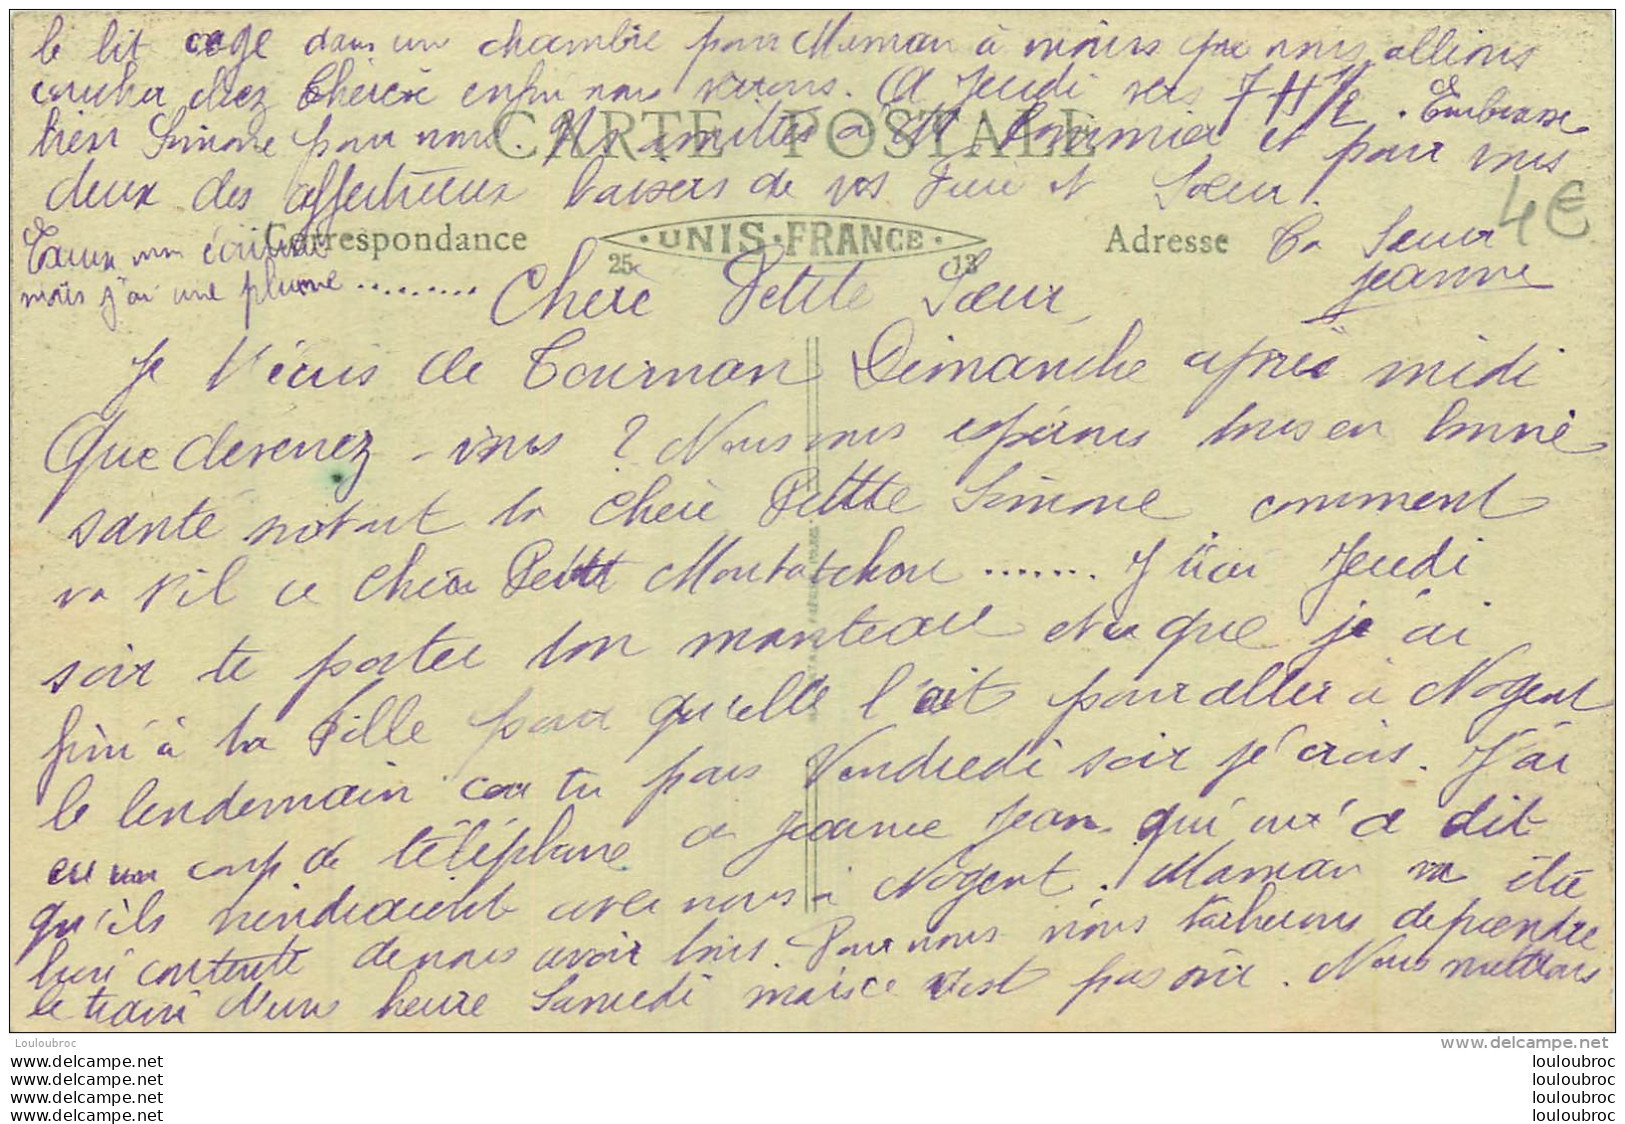 le lit cage dans une chambre pour Maman à moins que nous allions
coucher chez Thérèse enfin nous verrons. A Jeudi vers 7 H 1/2. Embrasse
bien Simone pour nous. Nos amitiés à Mr et pour vous
deux des affectueux baisers de vos Frère et Sœur.
CARTE POSTALE
4€
Correspondance
UNIS·FRANCE
25 13
Adresse
Ta Sœur
Jeanne
Excuse mon écriture
mais j'ai une plume .........
Chère Petite Sœur,
Je t'écris de Tournan Dimanche après midi
Que devenez-vous ? Nous vous espérons tous en bonne
santé surtout la chère Petite Simone comment
va t'il ce cher Petit ....... J'irai Jeudi
soir te porter ton manteau que j'ai
fini à ta Fille pour qu'elle l'ait pour aller à Nogent
le lendemain car tu pars Vendredi soir je crois. J'ai
eu un coup de téléphone de Jeanne Jean qui m'a dit
qu'ils viendraient avec nous à Nogent. Maman va être
bien contente de nous avoir tous. Pour nous nous tâcherons de prendre
le train d'une heure Samedi mais ce n'est pas sûr. Nous mettrons
Louloubroc
www.delcampe.net
www.delcampe.net
www.delcampe.net
www.delcampe.net
www.delcampe.net
louloubroc
louloubroc
louloubroc
louloubroc